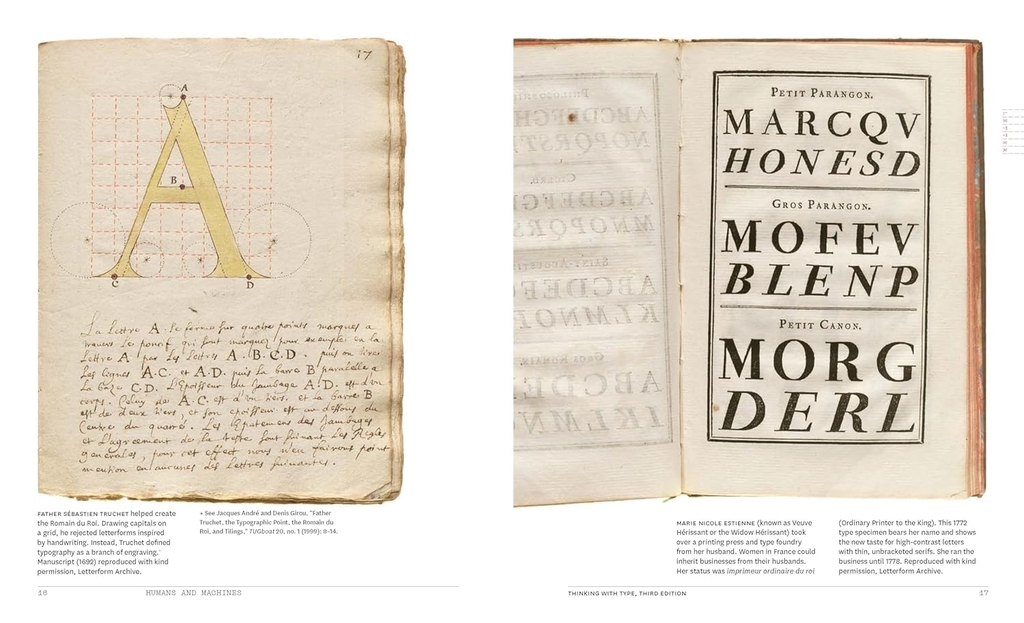 17
A
B
C
D
La lettre A. se forme sur quatre points marqués a
travers le poncif, qui sont marquez pour exemple en la
Lettre A par les lettres A. B. C. D. puis on tire
les lignes A.C. et A.D. puis la barre B parallele a
la baze C.D. L'Epoisseur du Jambage A.D. est d'un
corps. Celuy de A.C. est d'un tiers. et la barre B
est de deux tiers, et son epoisseur est au dessous du
Centre du quarré. Les Epatemens des Jambages
et L'agreement de la teste sont suivant les Regles
generales, pour cet effect nous n'en fairons point
mention en aucunes des Lettres suivantes.
FATHER SÉBASTIEN TRUCHET helped create
the Romain du Roi. Drawing capitals on
a grid, he rejected letterforms inspired
by handwriting. Instead, Truchet defined
typography as a branch of engraving.
Manuscript (1692) reproduced with kind
permission, Letterform Archive.
+ See Jacques André and Denis Girou, "Father
Truchet, the Typographic Point, the Romain du
Roi, and Tilings," TUGboat 20, no. 1 (1999): 8–14.
16 HUMANS AND MACHINES
PETIT PARANGON.
MARCQV
HONESD
GROS PARANGON.
MOFEV
BLENP
PETIT CANON.
MORG
DERL
MARIE NICOLE ESTIENNE (known as Veuve
Hérissant or the Widow Hérissant) took
over a printing press and type foundry
from her husband. Women in France could
inherit businesses from their husbands.
Her status was imprimeur ordinaire du roi
(Ordinary Printer to the King). This 1772
type specimen bears her name and shows
the new taste for high-contrast letters
with thin, unbracketed serifs. She ran the
business until 1778. Reproduced with kind
permission, Letterform Archive.
THINKING WITH TYPE, THIRD EDITION 17